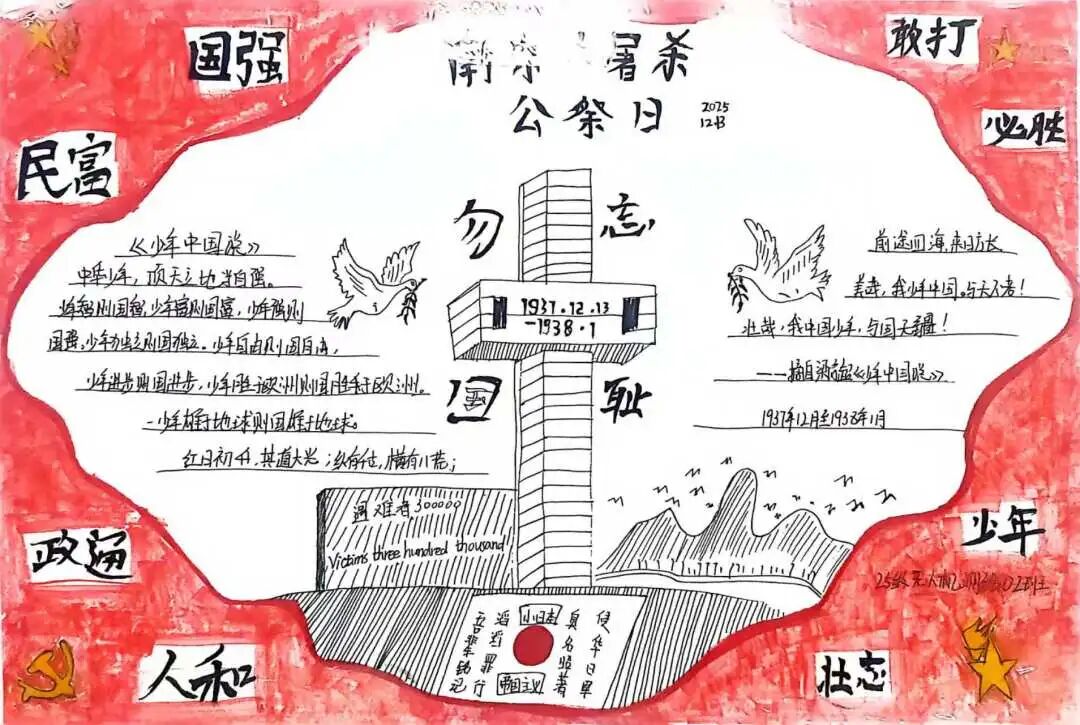 国强
敢打
南京 屠杀
公祭日
2025
12.13
民富
必胜
勿忘
国耻
《少年中国说》
中华少年，顶天立地当自强。
少年智则国智，少年富则国富，少年强则
国强。少年独立则国独立。少年自由则国自由，
少年进步则国进步，少年胜于欧洲则国胜于欧洲。
少年雄于地球则国雄于地球。
红日初升，其道大光；纵有千古，横有八荒；
前途四海，来日方长
美哉，我少年中国，与天不老！
壮哉，我中国少年，与国无疆！
——摘自梁启超《少年中国说》
1937年12月至1938年1月
1937.12.13
-1938.1
遇难者300000
Victims three hundred thousand
政通
少年
人和
壮志
侵华日军
臭名昭著
罪行
吾辈铭记